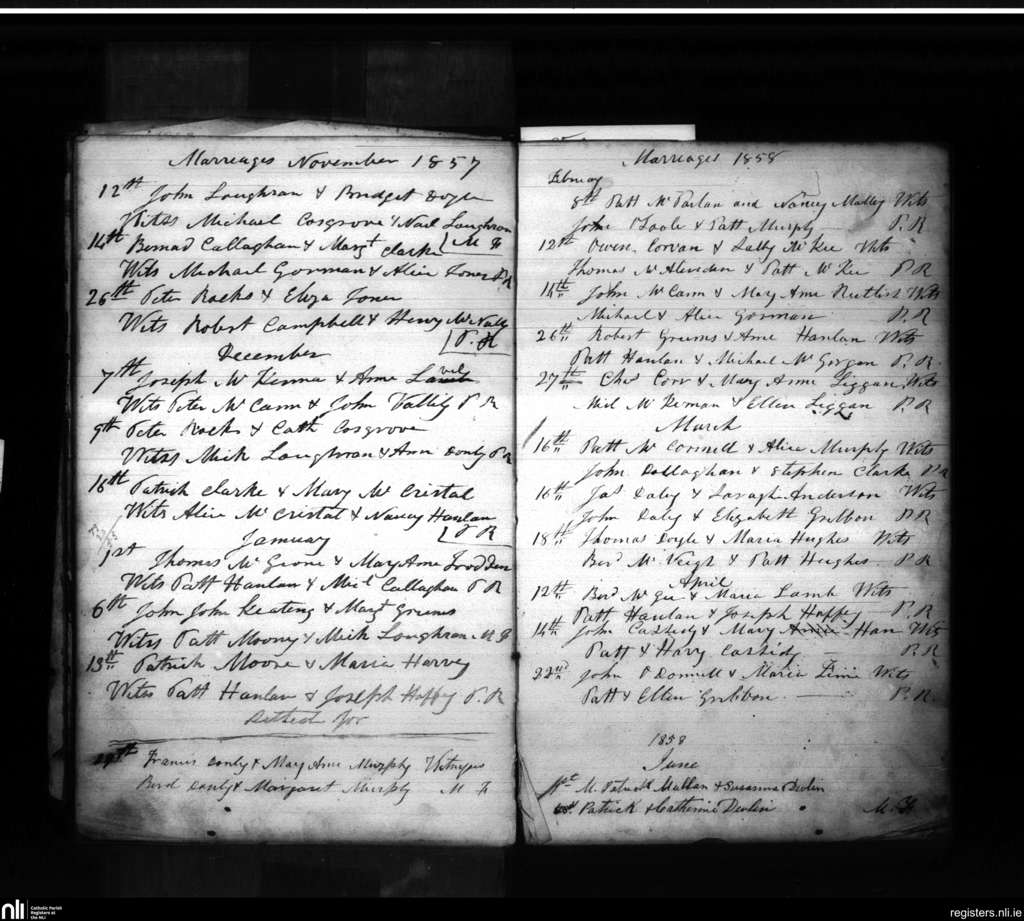 Marreages November 1857
12th John Loughran & Bridget Doyle
Witss Michael Cosgrove & Neal Loughran
14th Bernad Callaghan & Margt Clarke M F
Wits Michael Gorman & Alice Jones P R
26th Peter Rocks & Eliza Jones
Wits Robert Campbell & Henry McNally
P. R
December
7th Joseph McKenna & Anne
Wits Peter McCann & John Vallily P R
9th Peter Rocks & Cath Cosgrove
Witss Mick Loughran & Ann Donly P R
16th Patrick Clarke & Mary McCristal
Wits Alice McCristal & Nancy Hanlan
P R
January
1st Thomas McGeone & Mary Anne Frodden
Wits Patt Hanlan & Micl Callaghan P R
6th John John Keating & Margt Greems
Witss Patt Moony & Mick Loughran M F
13th Patrick Moore & Maria Harvey
Witss Patt Hanlan & Joseph Happy P. R
for
Francis Donly & Mary Anne Murphy Witnesses
Bernd Donly & Margaret Murphy M F
Marreages 1858
Februay
8th Patt McParlan and Nancy Mallay Wits
John O'Toole & Patt Murphy P. R
12th Owen Corvan & Sally McKee Wits
Thomas McAlinden & Patt McKee P R
14th John McCann & Mary Anne Wits
Michael & Alice Gorman P. R
26th Robert Greems & Anne Hanlan Wits
Patt Hanlan & Michael McGorgan P. R.
27th Chs Corr & Mary Anne Liggan Wits
Micl McKernan & Ellen Liggan P. R
March
16th Patt McConnell & Alice Murphy Wits
John Dallaghan & Stephen Clarke P R
16th Jas Daly & Saragh Anderson Wits
John Daly & Elizabeth Gribbon P R
18th Thomas Doyle & Maria Hughes Wits
Berd McVeigh & Patt Hughes P. R
April
12th Berd McGee & Maria Lamb Wits
Patt Hanlan & Joseph Happy P. R
14th John Cassidy & Mary Han Wits
Patt & Harry Cassidy P. R
22nd John O Donnell & Maria Wits
Patt & Ellen Gribbon P. R.
1858
June
M. Patrick Mallan & Susanna Devlin
Patrick & Catherine Devlin M. F.
nli
Catholic Parish
Registers at
the NLI
registers.nli.ie